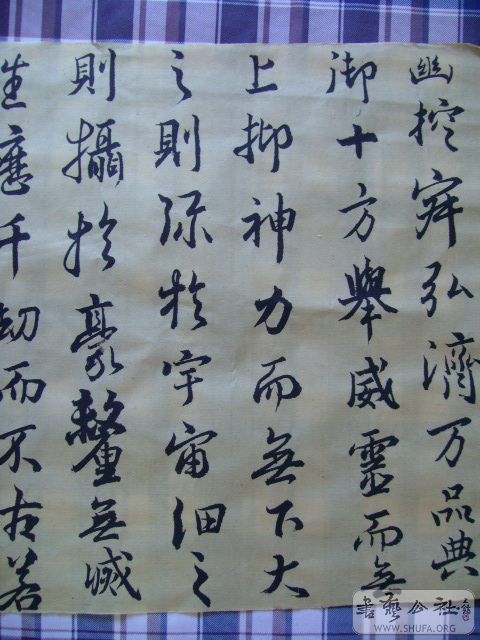 幽控寂弘濟万品典
御十方舉威靈而無
上抑神力而無下大
之則弥於宇宙細之
則攝於豪釐無滅
生歷千劫而不古若
書藝公社
WWW.SHUFA.ORG